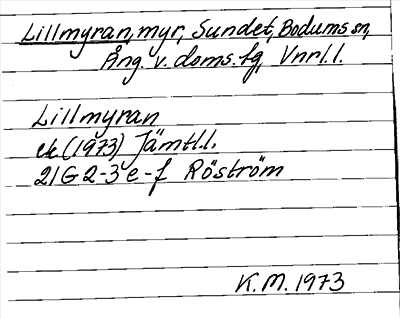 Lillmyran, myr, Sundet, Bodums sn,
Ång. v. doms. fg, Vnrl.l.
Lillmyran
ek (1973) Jämtl.l.
21G 2-3 e-f Röström
K.M. 1973